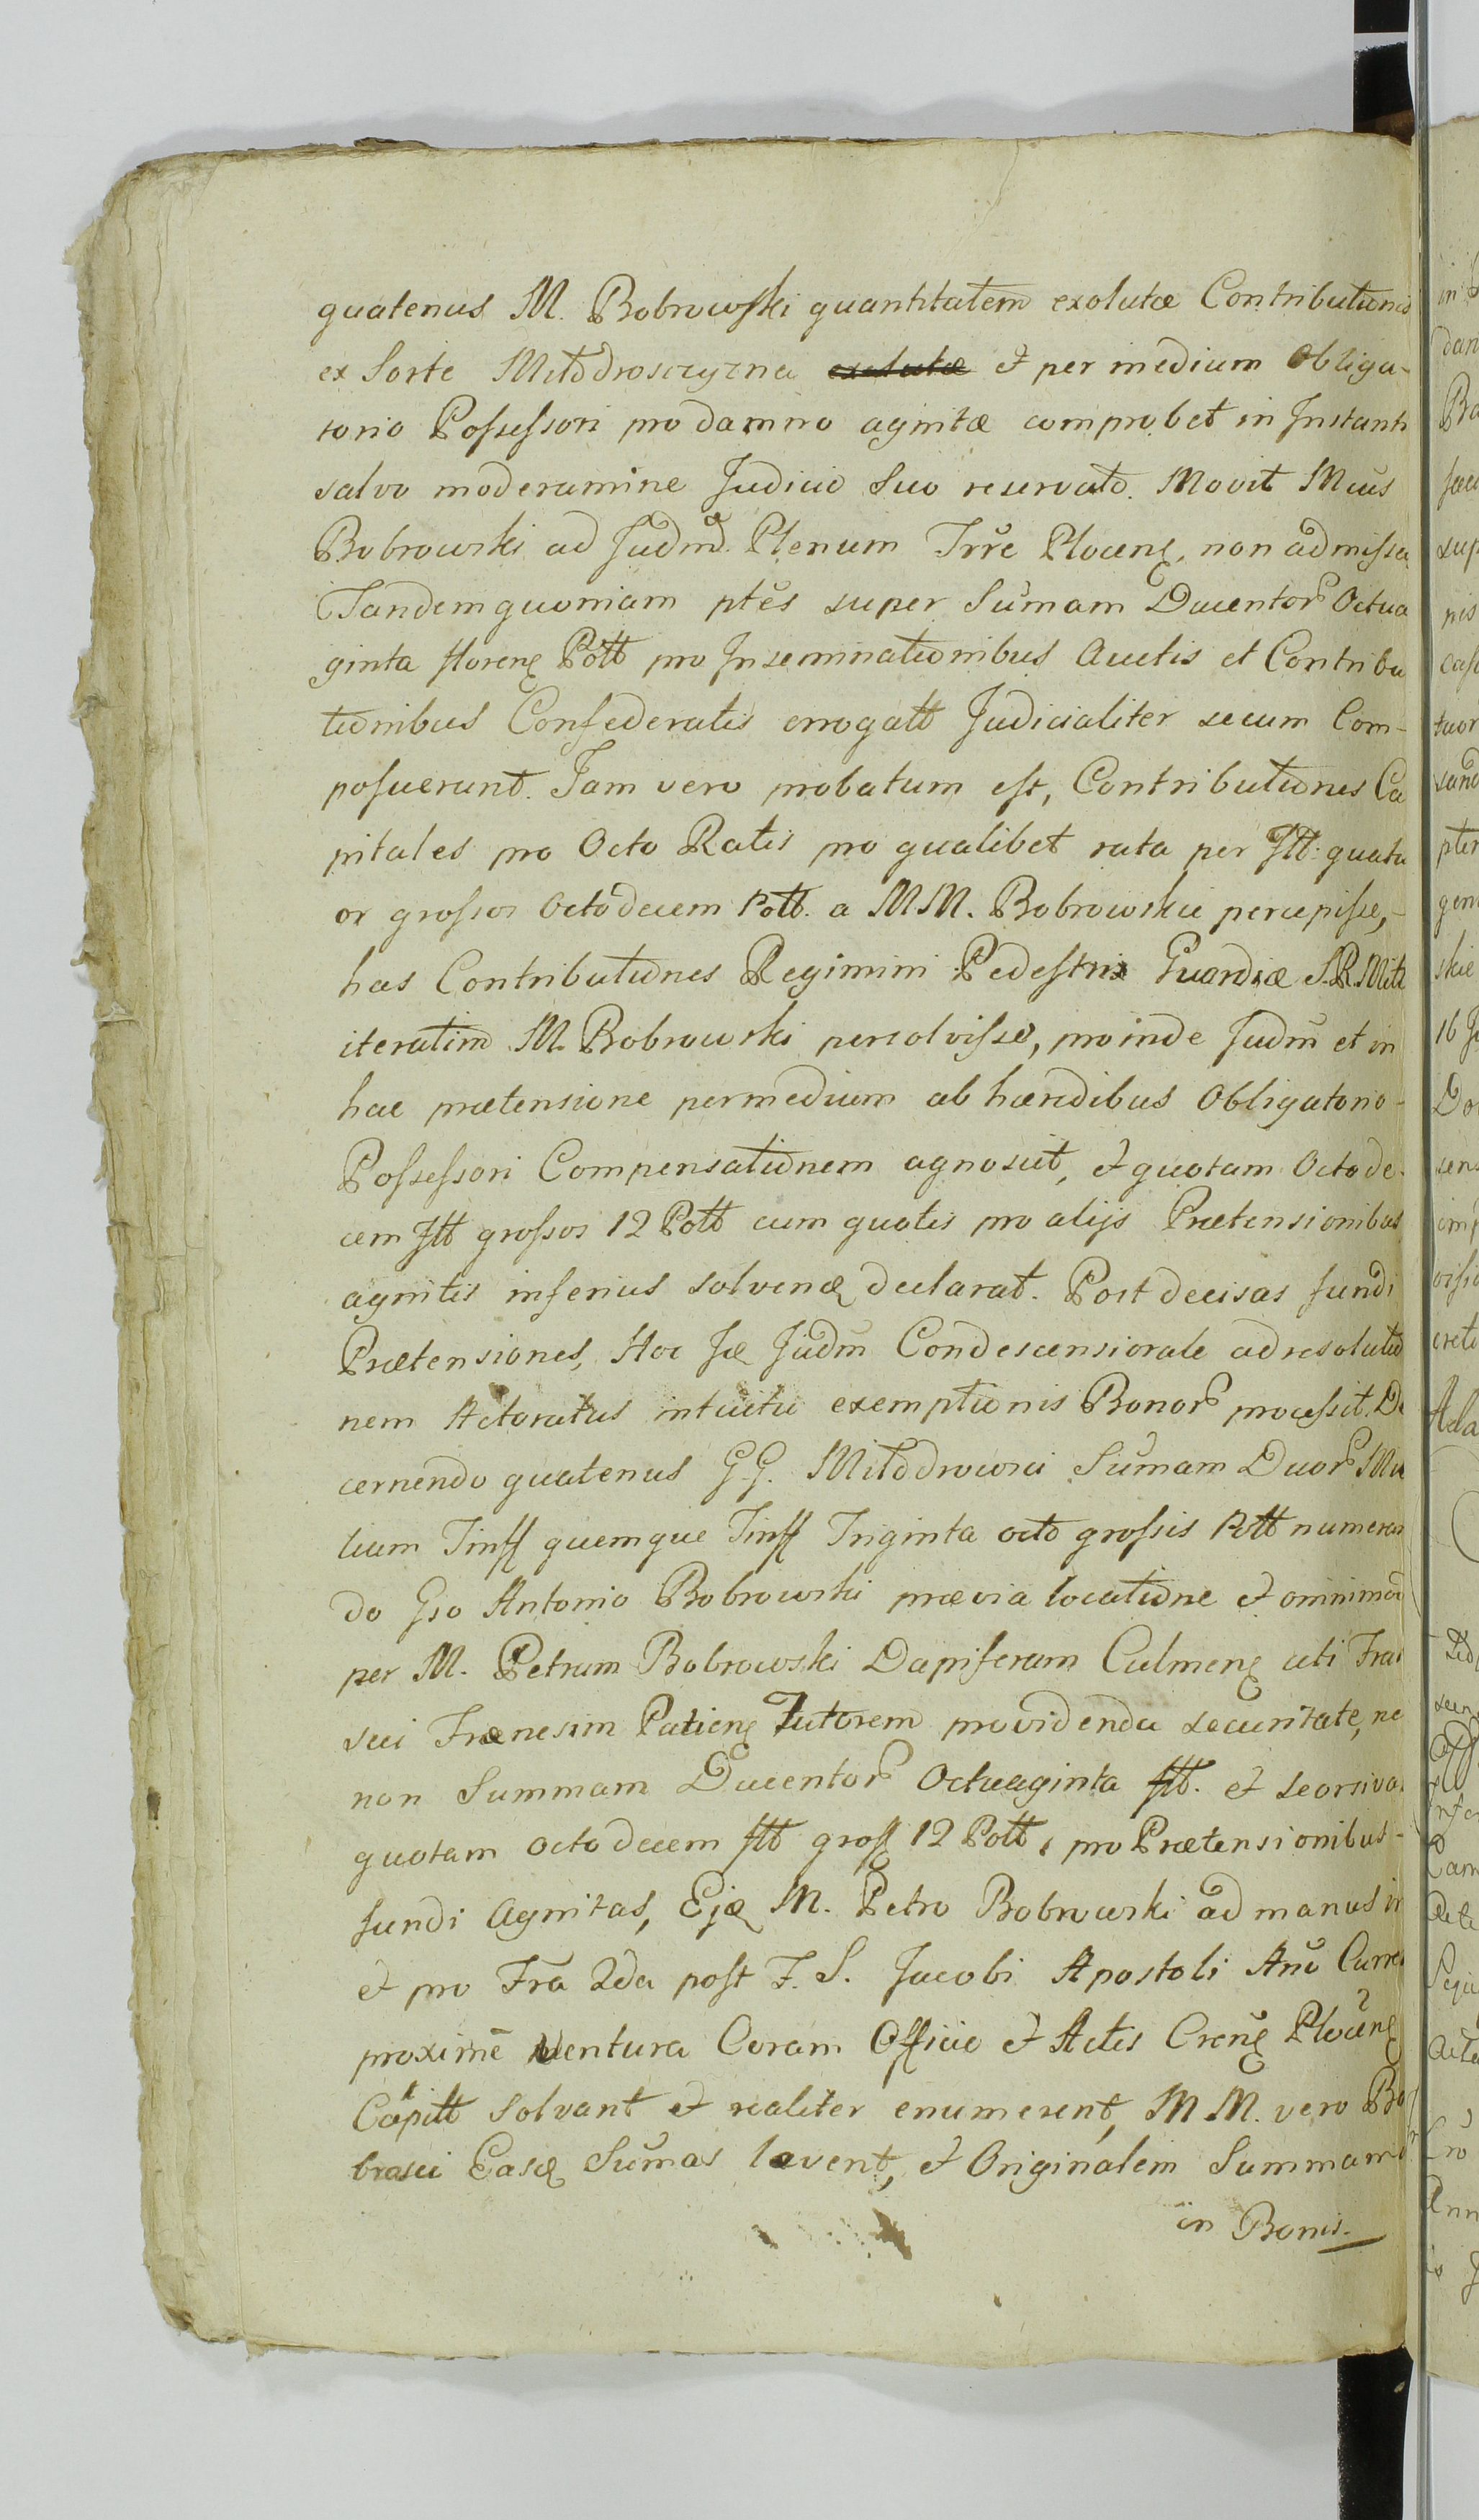 quatenus M. Bobrowski quantitatem exolutæ Contributionis
ex Sorte Miłodroszczyzna exolutæ et per medium Obliga-
torio Possessori pro damno agnitæ comprobet in Instanti
salvo moderamine Judicio Suo reservato. Movit Mcus
Bobrowski ad Judm̃ Plenum Trre Plocen, non admissa
Tandem quoniam ptes super Sumam Ducentor Octua
ginta floren Poll pro Inseminationibus Auctis et Contribu
tionibus Confederatis erogatt Judicialiter secum Com-
posuerunt. Jam vero probatum est, Contributiones Ca
pitales pro Octo Ratis pro qualibet rata per fll: quatu
or grossos Octodecem Poll. a MM. Bobrowskie percepisse,-
has Contributiones Regimini Pedestris Guardiæ S.R.Mtti
iteratim M. Bobrowski persolvisse, proinde Judm et in
hac prætensione permedium ab hæredibus Obligatorio-
Possessori Compensationem agnoscit, et quotam Octode-
cem fll grossos 12 Poll cum quotis pro alijs Prætensionibus
agnitis inferius solvend declarat. Post decisas fundi
Prætensiones, Hoc Jdq Judm Condescensiorale ad resolutio
nem Actoratus intuitu exemptionis Bonor processit. De
cernendo quatenus GG. Miłodrowsci Sumam Duor Mil
lium Tinff quemque Tinff Triginta octo grossis Poll numeran
do Gso Antonio Bobrowski prævia locatione et omnimod
per M. Petrum Bobrowski Dapiferum Culmen uti Frat
sui Frænesim Patien Tutorem providenda securitate, nec
non Summam Ducentor Octuaginta fll. et seorsiva
quotam octodecem fll gross 12 Poll, pro Prætensionibus-
fundi Agnitas, Ejdq M. Petro Bobrowski ad manus in
et pro Fra 2da post F. S. Jacobi Apostoli Ano Curren
proxime Ventura Coram Officio et Actis Cren Plocen
Capitt Solvant et realiter enumerent, MM. vero Bo
browsci Easdq Sumas levent, et Originalem Summam
in Bonis.